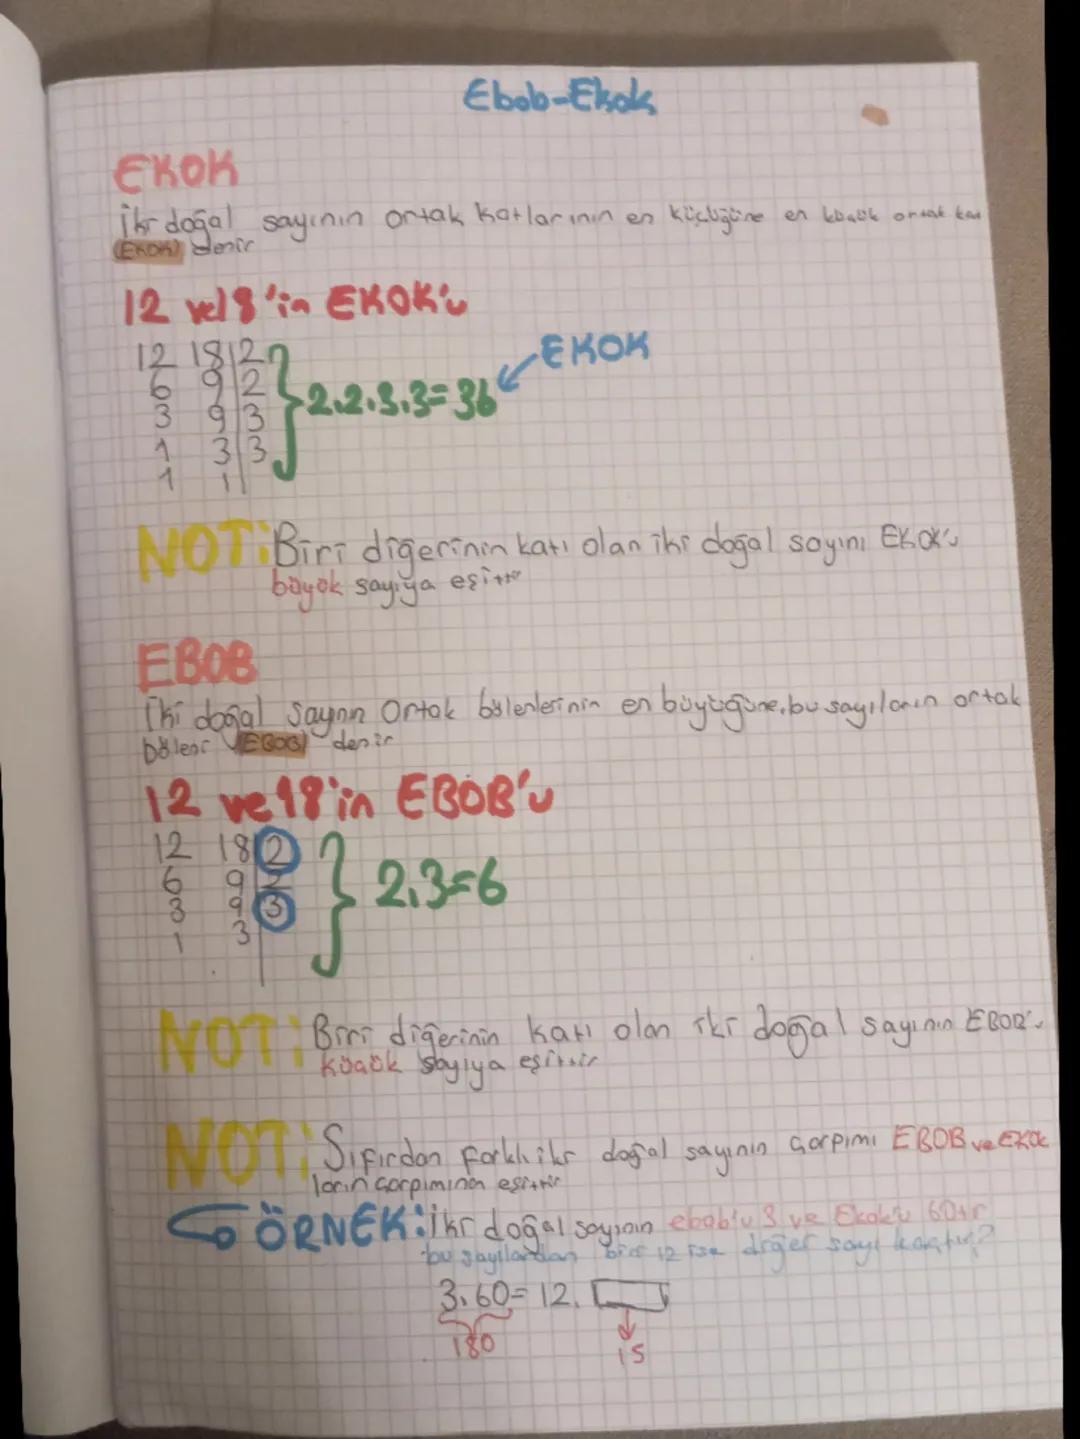 Ebob-Ekok
EKOK
İki doğal sayının ortak katlarının en küçüğüne en küçük ortak kat
(EKOK) denir
12 ve 18'in EKOK'u
12 18|2
6 9|2
3 9|3
1 3|3
1 1|
2.2.3.3=36
EKOK
NOT: Biri diğerinin katı olan iki doğal sayını EKOK'u
büyük sayıya eşittir
EBOB
İki doğal sayının Ortak bölenlerinin en büyüğüne, bu sayıların ortak
böleni (EBOB) denir
12 ve 18'in EBOB'u
12 18|2
6 9|2
3 9|3
1 3|
2.3=6
NOT: Biri diğerinin katı olan iki doğal sayının EBOB'u
küçük sayıya eşittir
NOT: Sıfırdan farklı iki doğal sayının çarpımı EBOB ve EKOK
ların çarpımına eşittir
ÖRNEK: İki doğal sayının ebob'u 3 ve Ekok'u 60tır
bu sayılardan biri 12 ise diğer sayı kaçtır?
3.60=12.
180
15